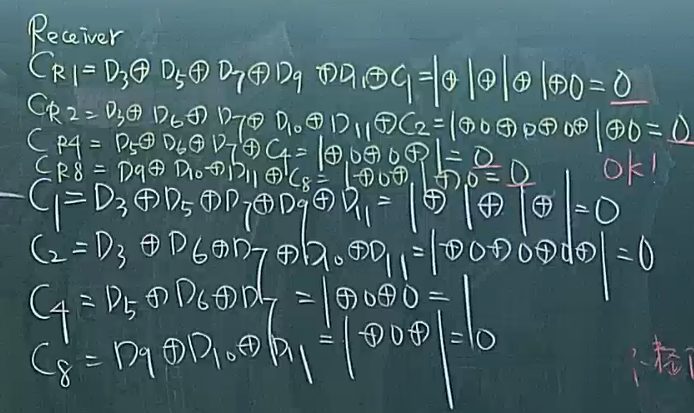 Receiver
CR1 = D3⊕ D5⊕ D7⊕ D9 ⊕D11⊕C1 = 1⊕1⊕1⊕1⊕0 = 0
CR2 = D3⊕ D6⊕ D7⊕ D10⊕D11⊕C2 = 1⊕0⊕0⊕0⊕1⊕0 = 0
CR4 = D5⊕D6⊕D7⊕C4 = 1⊕0⊕0⊕1 = 0
CR8 = D9⊕ D10⊕D11⊕C8 = 1⊕0⊕1⊕0 = 0
OK!
C1 = D3⊕D5⊕D7⊕D9⊕D11 = 1⊕1⊕1⊕1 = 0
C2 = D3⊕D6⊕D7⊕D10⊕D11 = 1⊕0⊕0⊕0⊕1 = 0
C4 = D5⊕D6⊕D7 = 1⊕0⊕0 = 1
C8 = D9⊕D10⊕D11 = 1⊕0⊕1 = 0